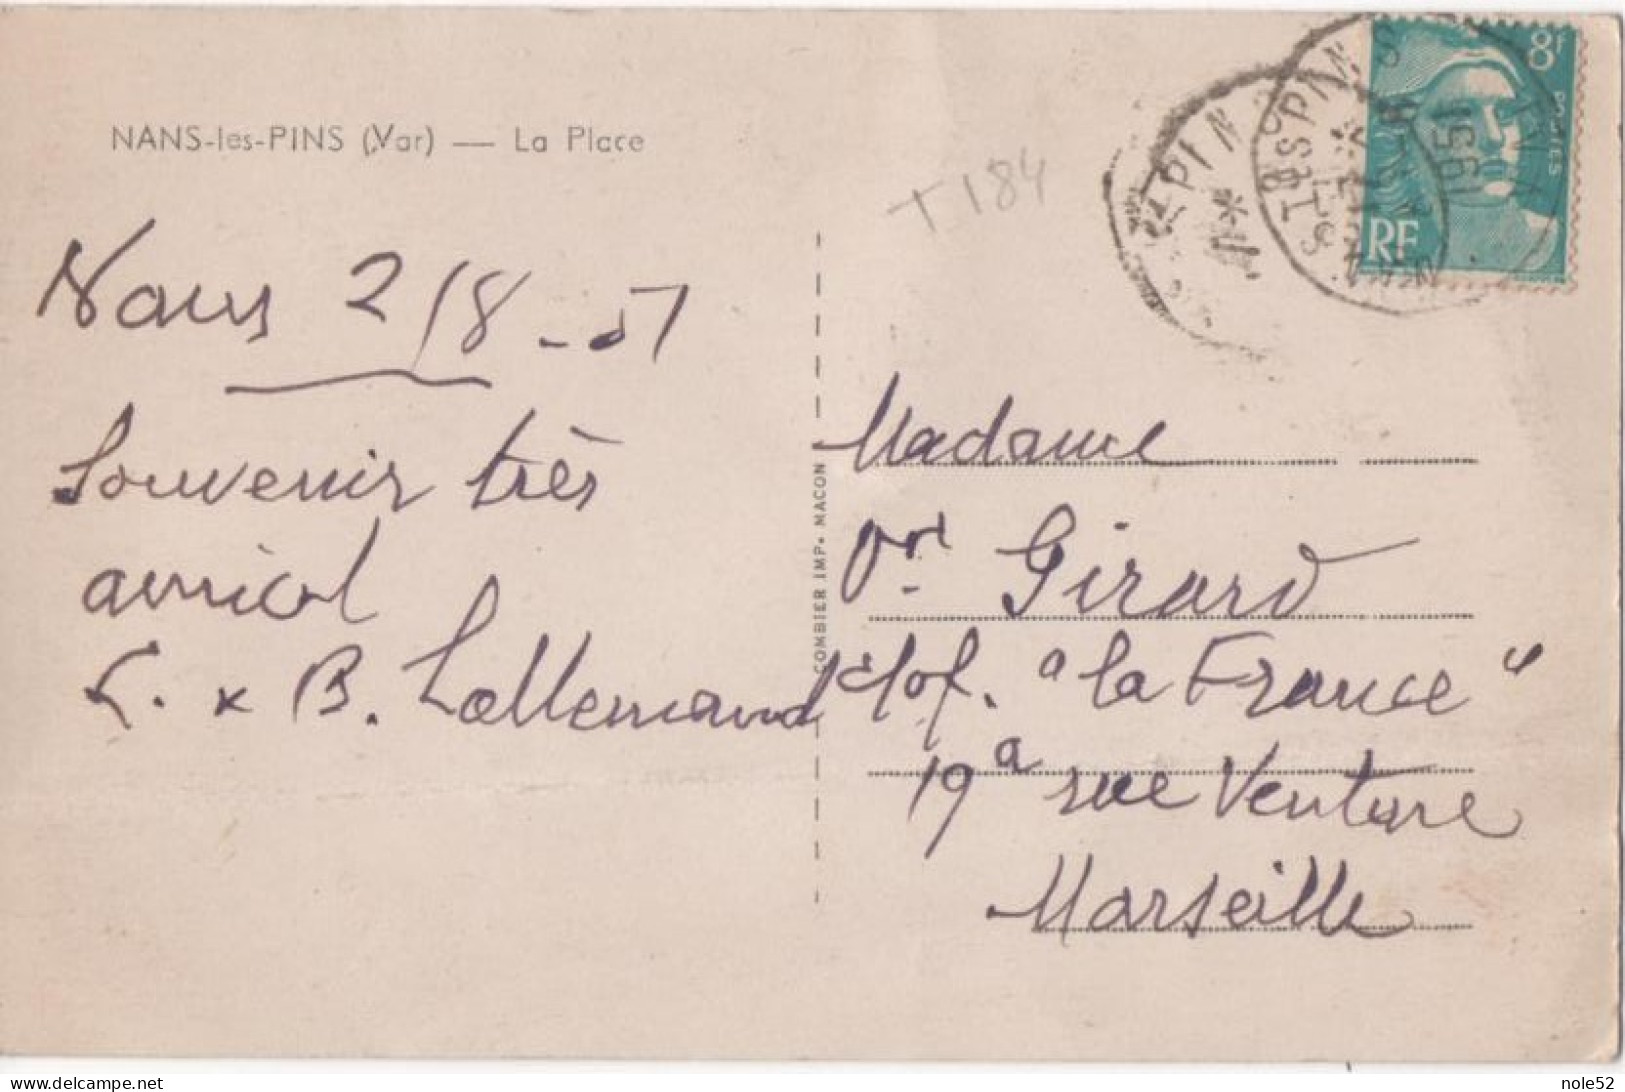 NANS-les-PINS (Var) — La Place
T 184
8f
POSTES
RF
1951
Nans 2/8-51
Souvenir très
amical
L. & B. Lallemand
COMBIER IMP. MACON
Madame
Girard
"la France"
19a rue Venture
Marseille
nole52